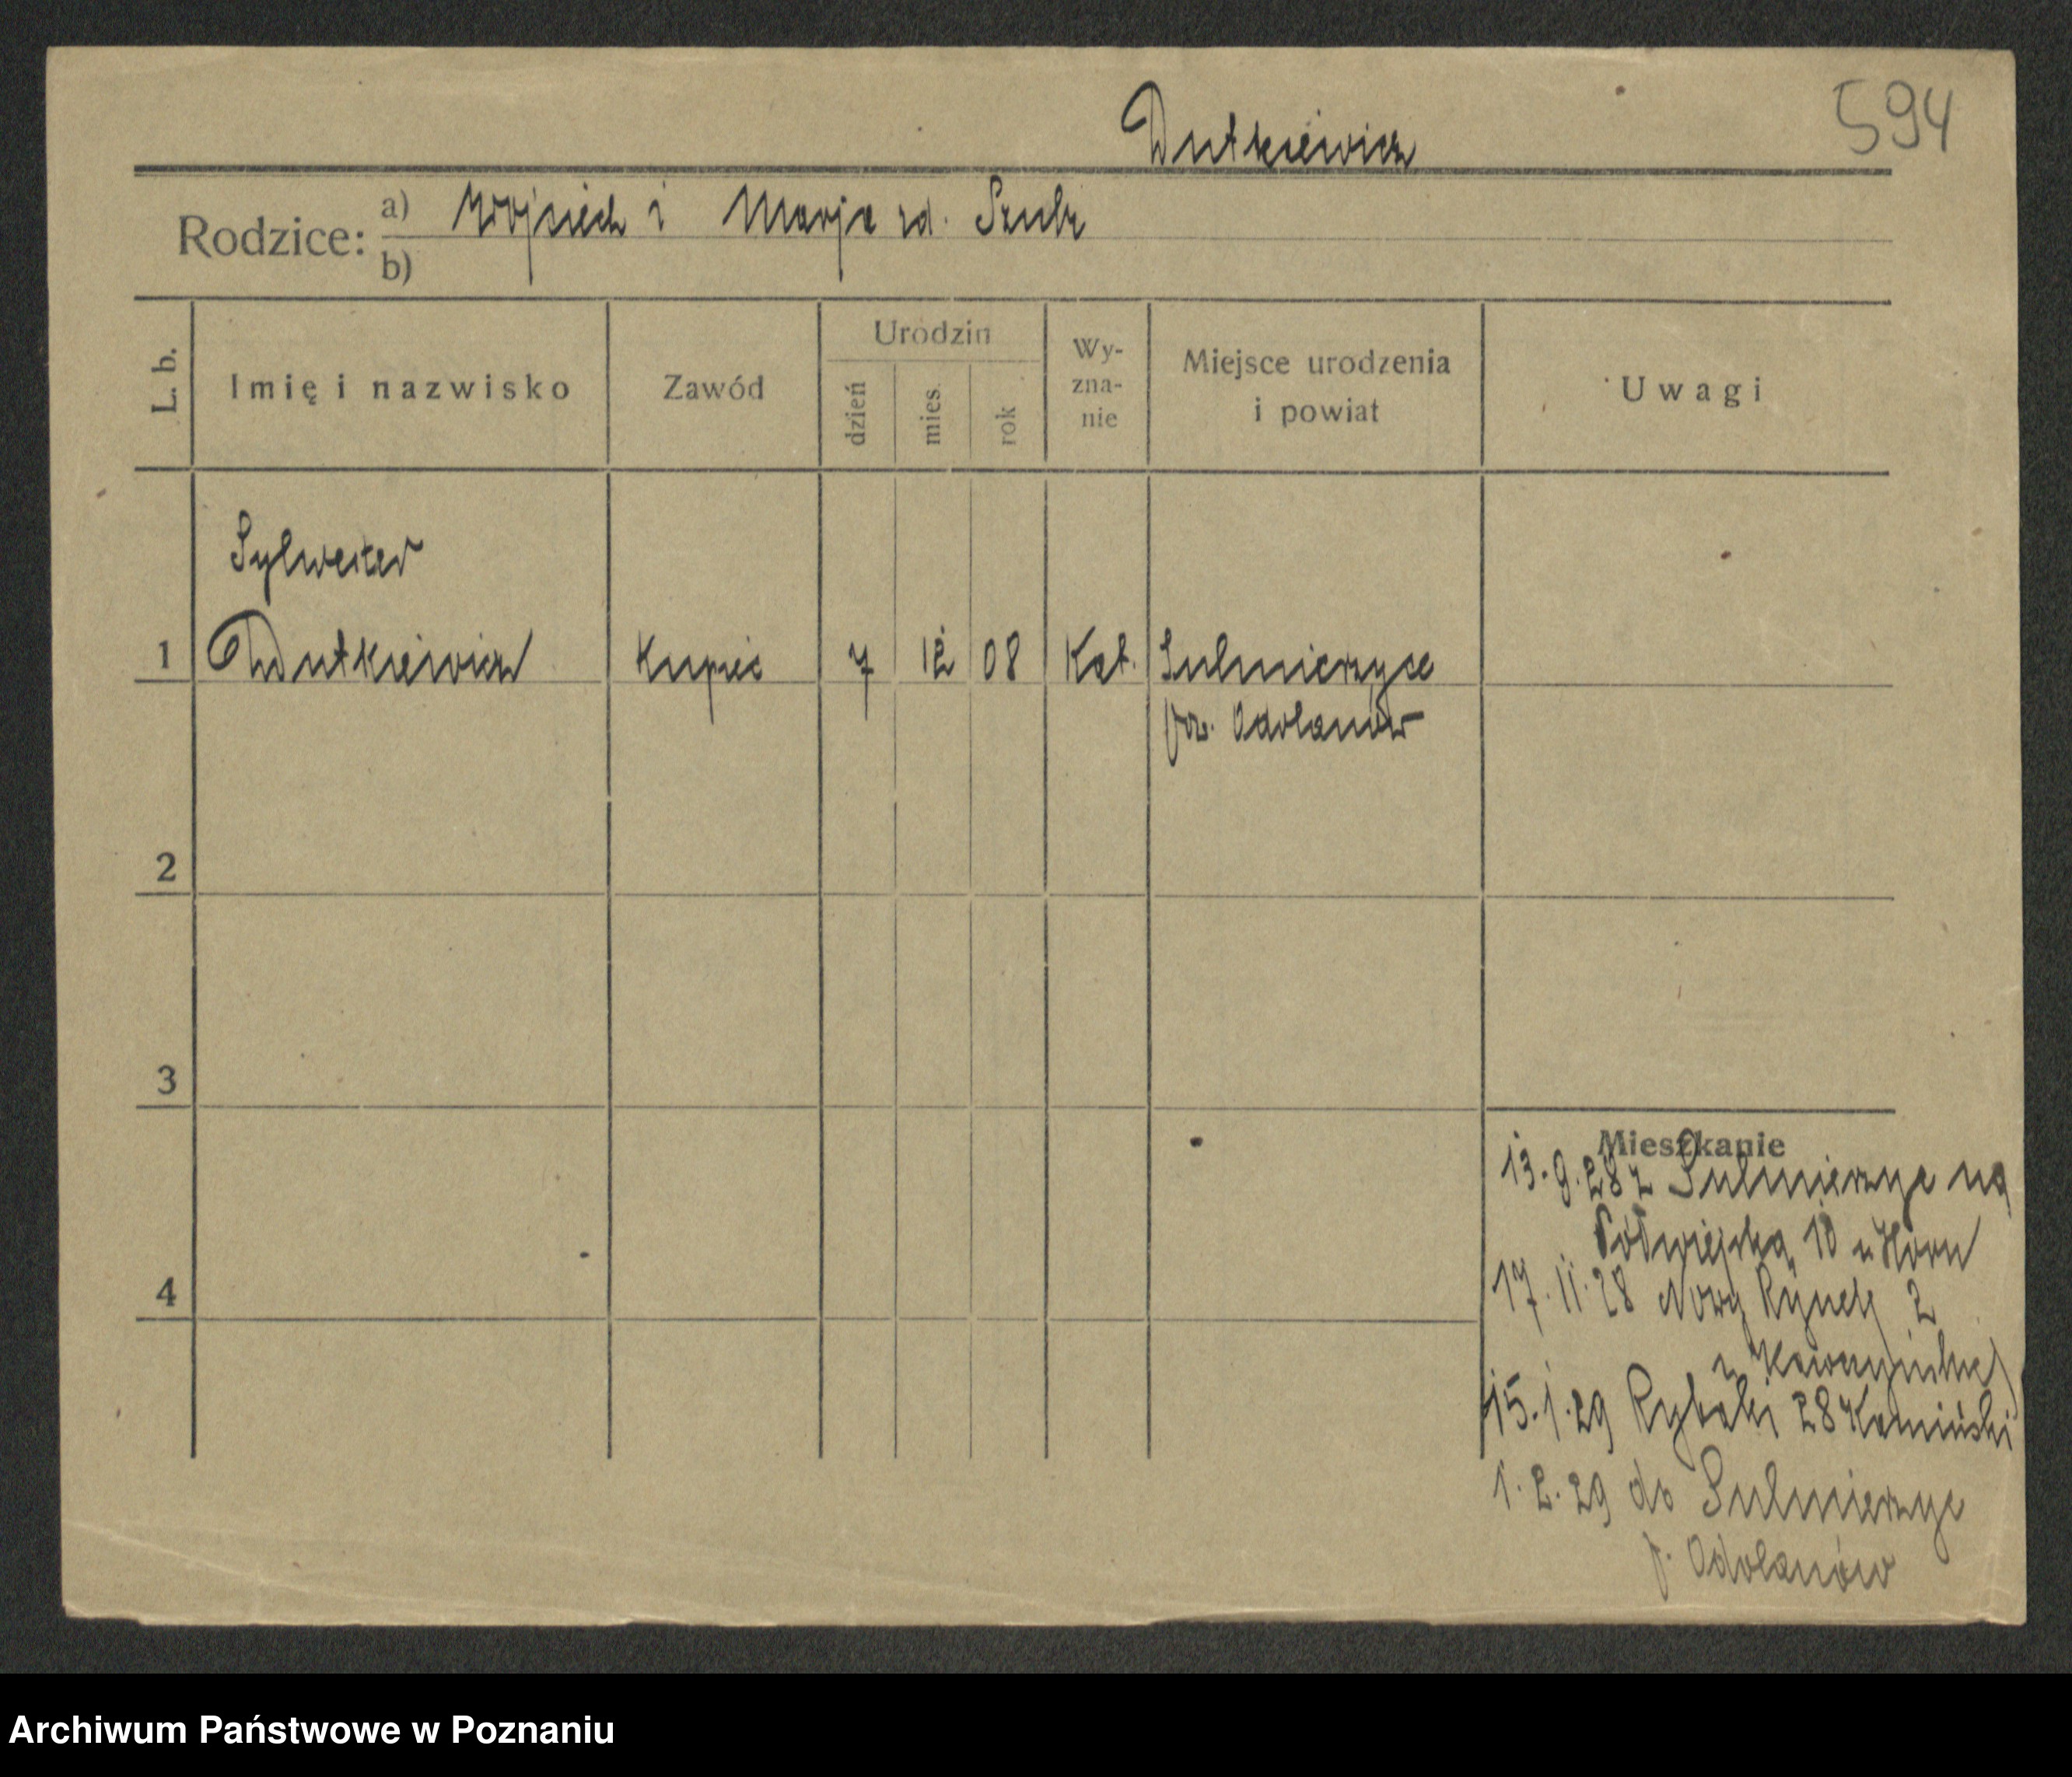 594
Dutkiewicz
Rodzice: a) Wojciech i Marja zd. Szulz
b)
L. b.
Imię i nazwisko
Zawód
Urodzin
dzień
mies.
rok
Wy-
zna-
nie
Miejsce urodzenia
i powiat
Uwagi
Sylwester
1 Dutkiewicz Kupiec 7 12 08 Kat. Sulmierzyce
pow. Odolanów
2
3
4
Mieszkanie
13.9.28 z Sulmierzyc na
Półwiejską 10 u Horn
17.11.28 Nowy Rynek 2
u
15.1.29 Rybaki 28 Kamiński
1.2.29 do Sulmierzyc
p. Odolanów
Archiwum Państwowe w Poznaniu